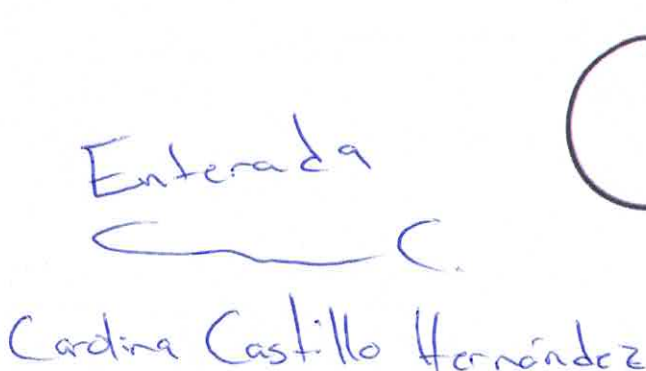 Enterada
C.
Carolina Castillo Hernández